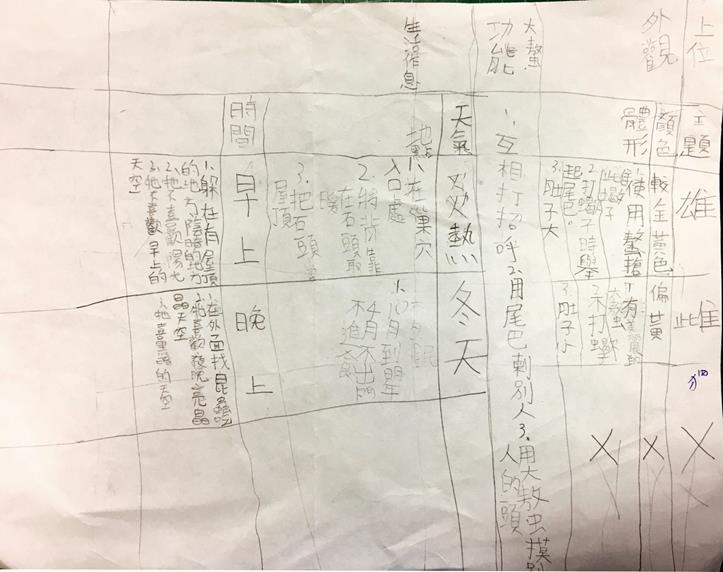 上位
主題
雄
雌
外觀
顏色
較金黃色
偏黃
體形
1.使用螯搶
2.打蠍子時舉
起尾巴。
3.肚子大
2.不打蠍
3.肚子小
大螯
功能
1.互相打招呼2.用尾巴刺別人3.用大螯虫摸別
人的頭
生活作息
天氣
炎熱
冬天
地點
1.在巢穴
入口處
2.將背靠
在石頭取
暖
3.把石頭當
屋頂
1.10月到星
4月不出門
不進食
時間
早上
晚上
1.躲在有屋頂
的地方,陰暗的地方
2.牠不喜歡陽光
3.牠不喜歡早上的
天空
1.在外面找昆蟲吃
2.牠喜歡夜晚亮晶
晶天空
3.牠喜歡黑的天空